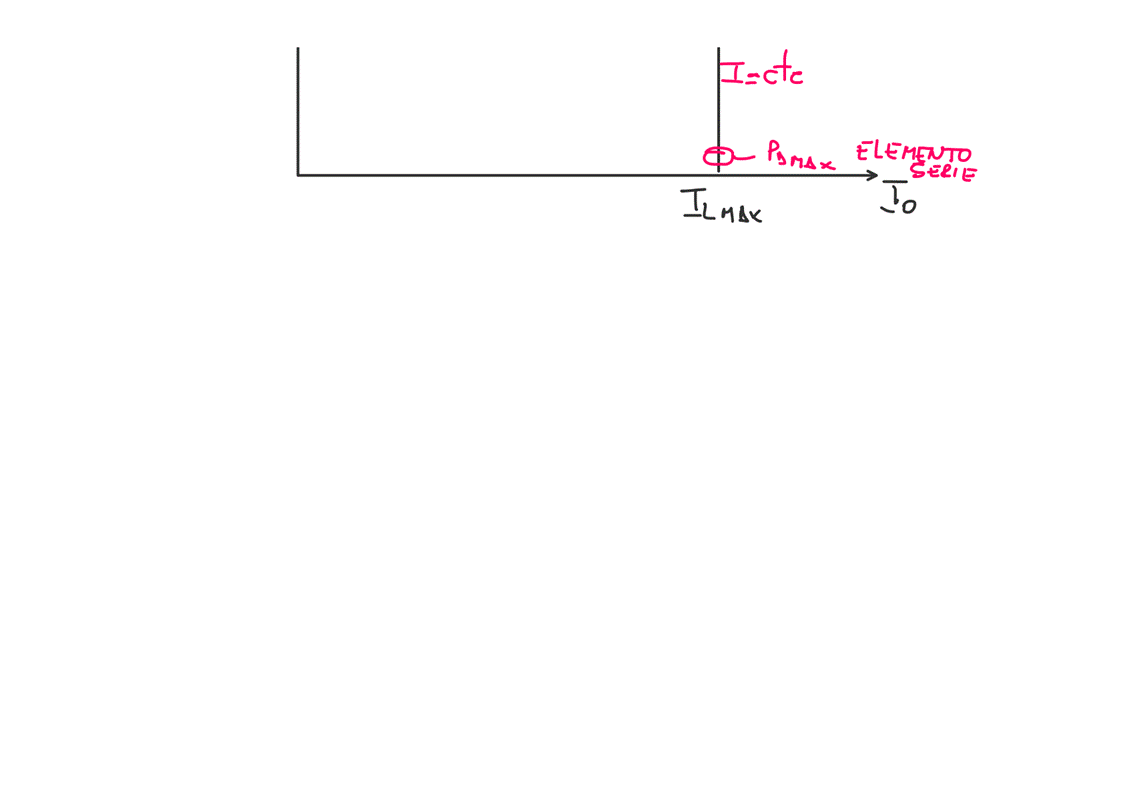 I=cte
PDMAX ELEMENTO
SERIE
ILMAX
Io